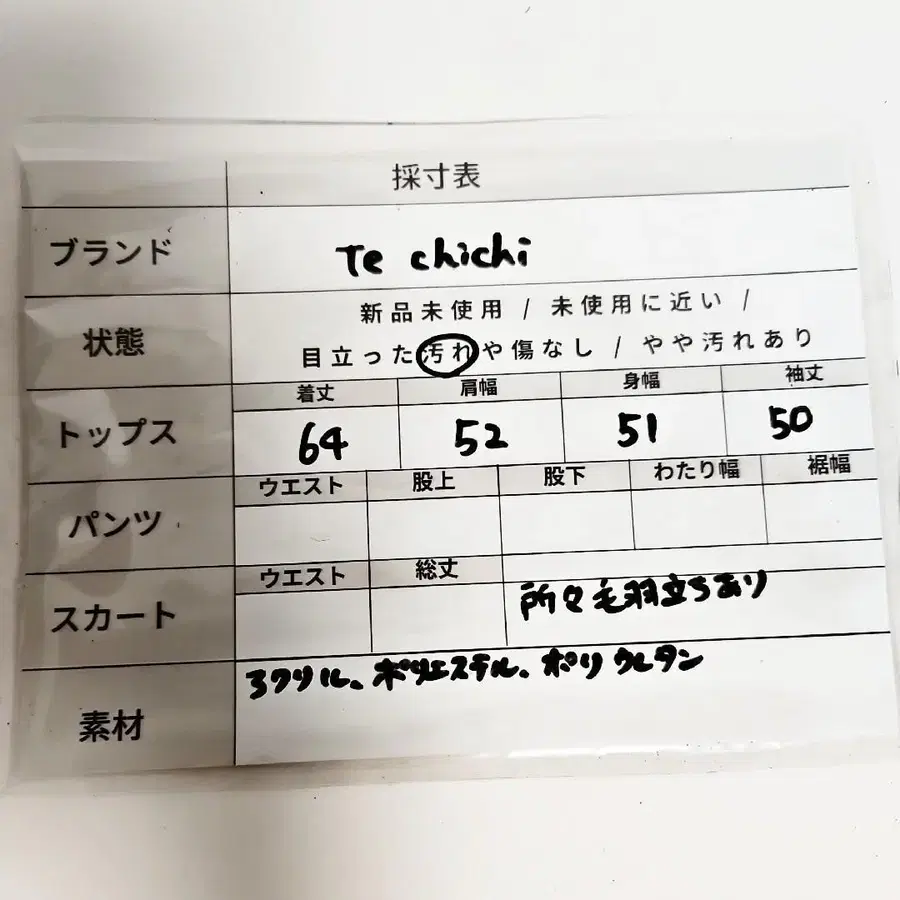 採寸表
ブランド
Te chichi
状態
新品未使用 / 未使用に近い /
目立った汚れや傷なし / やや汚れあり
トップス
着丈 肩幅 身幅 袖丈
64 52 51 50
パンツ
ウエスト 股上 股下 わたり幅 裾幅
スカート
ウエスト 総丈
所々毛羽立ちあり
素材
アクリル、ポリエステル、ポリウレタン